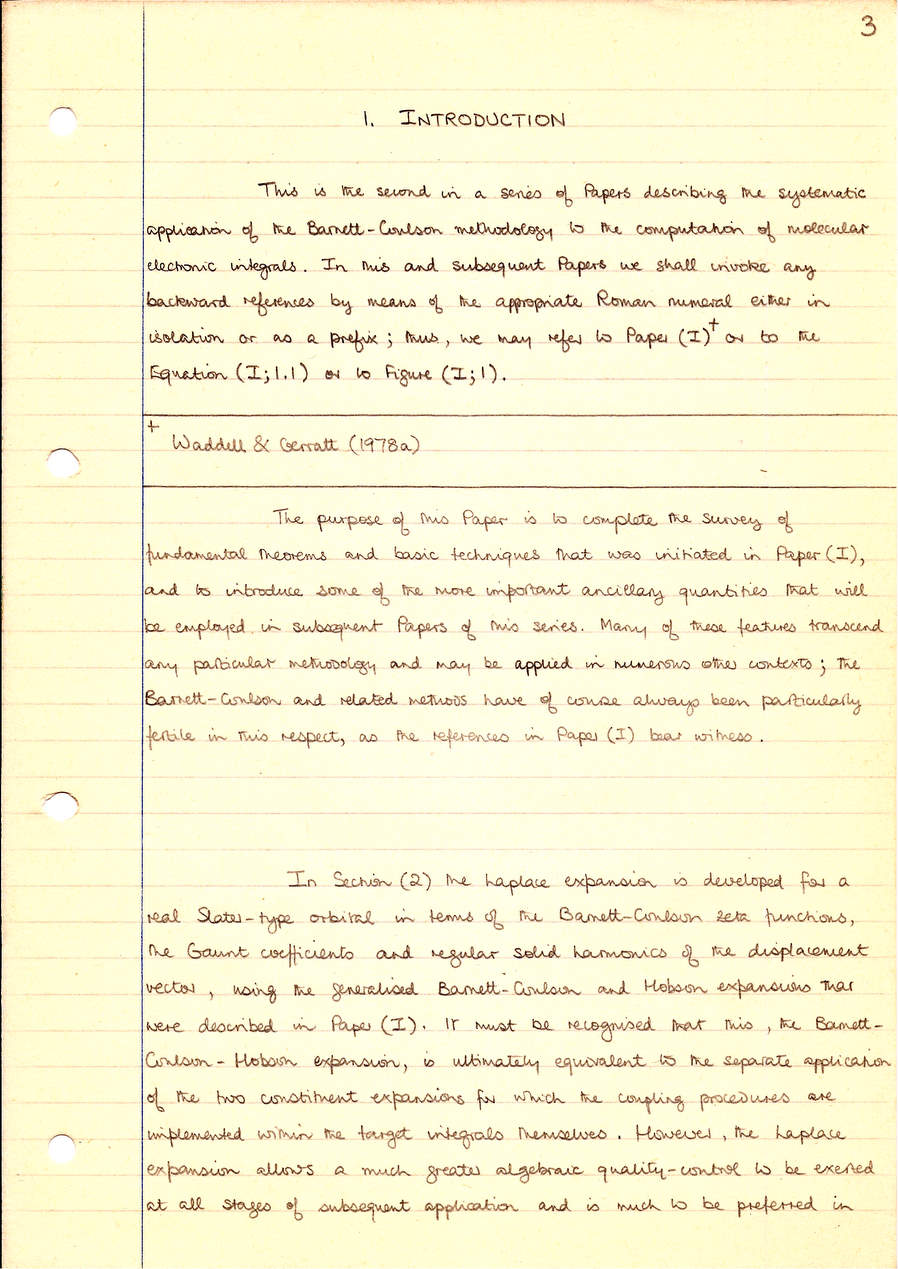 3
1. INTRODUCTION
This is the second in a series of Papers describing the systematic
application of the Barnett-Coulson methodology to the computation of molecular
electronic integrals. In this and subsequent Papers we shall invoke any
backward references by means of the appropriate Roman numeral either in
isolation or as a prefix; thus, we may refer to Paper (I)† or to the
Equation (I;1.1) or to Figure (I;1).
† Waddell & Gerratt (1978a)
The purpose of this Paper is to complete the survey of
fundamental theorems and basic techniques that was initiated in Paper (I),
and to introduce some of the more important ancillary quantities that will
be employed in subsequent Papers of this series. Many of these features transcend
any particular methodology and may be applied in numerous other contexts; the
Barnett-Coulson and related methods have of course always been particularly
fertile in this respect, as the references in Paper (I) bear witness.
In Section (2) the Laplace expansion is developed for a
real Slater-type orbital in terms of the Barnett-Coulson zeta functions,
the Gaunt coefficients and regular solid harmonics of the displacement
vector, using the generalised Barnett-Coulson and Hobson expansions that
were described in Paper (I). It must be recognised that this, the Barnett-
Coulson-Hobson expansion, is ultimately equivalent to the separate application
of the two constituent expansions for which the coupling procedures are
implemented within the target integrals themselves. However, the Laplace
expansion allows a much greater algebraic quality-control to be exerted
at all stages of subsequent application and is much to be preferred in